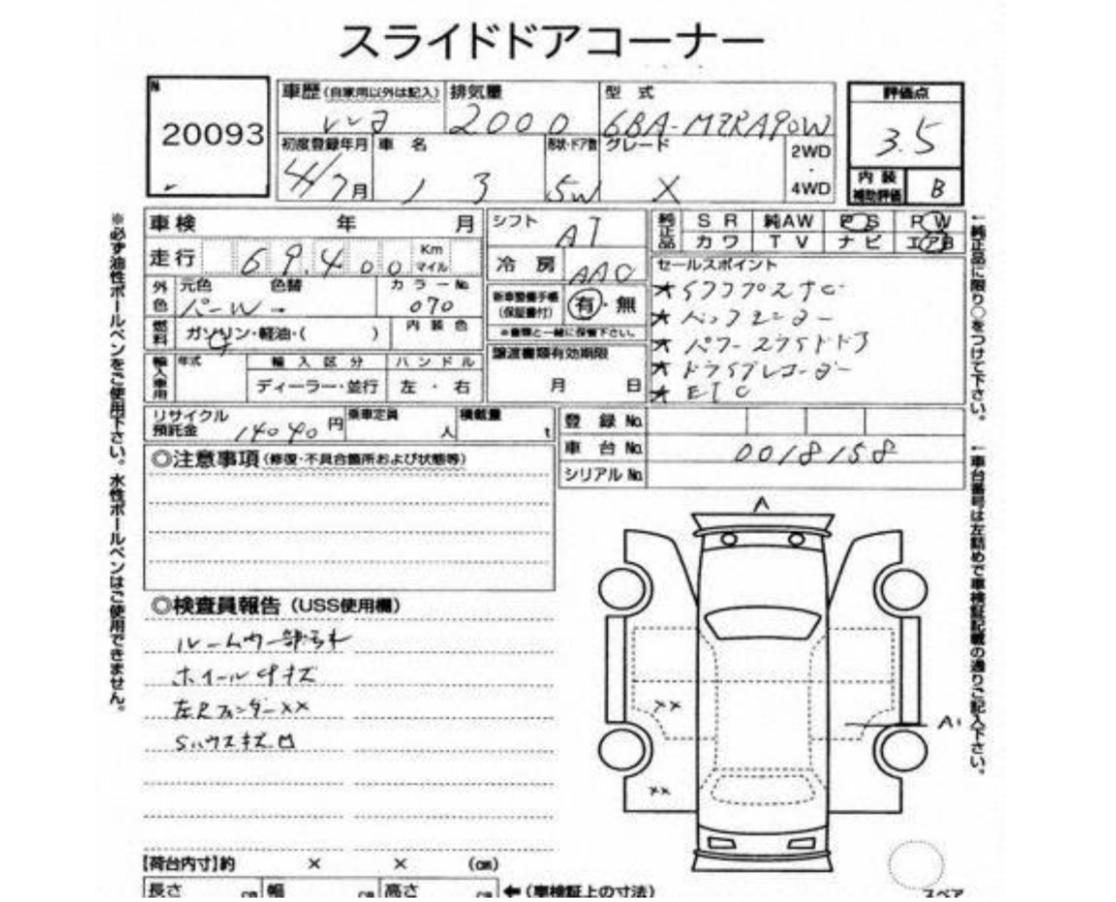 スライドドアコーナー
No.
20093
車歴(自家用以外は記入) 排気量 型式
レンタ 2000 6BA-MZRA90W
初度登録年月 車名 形状・ドア数 グレード 2WD・4WD
4/7月 5W X
評価点
3.5
内装補助評価 B
車検 年 月
走行 69,400 Km マイル
外色 元色 色替 カラーNo.
パールW → 070
燃料 ガソリン・軽油・( ) 内装色
輸入車用 年式 輸入区分 ハンドル
ディーラー・並行 左・右
シフト AT
冷房 AAC
新車整備手帳(保証書付) 有・無
※書類と一緒に保管下さい。
譲渡書類有効期限
月 日
純正品 SR 純AW PS PW
カワ TV ナビ エアB
セールスポイント
★
★
★パワースライドドア
★ドライブレコーダー
★ETC
リサイクル預託金 14040円 乗車定員 人 積載量 t
登録No.
車台No. 0018158
シリアルNo.
◎注意事項(修復・不具合箇所および状態等)
◎検査員報告(USS使用欄)
ルーム
ホイール キズ
左Rフェンダー××
Sハウスキズ凹
A
××
A1
××
【荷台内寸】約 × × (cm)
長さ cm 幅 cm 高さ cm ←(車検証上の寸法)
スペア
※必ず油性ボールペンをご使用下さい。水性ボールペンはご使用できません。
←純正品に限り○をつけて下さい。
←車台番号は左詰めで車検証記載の通りご記入下さい。